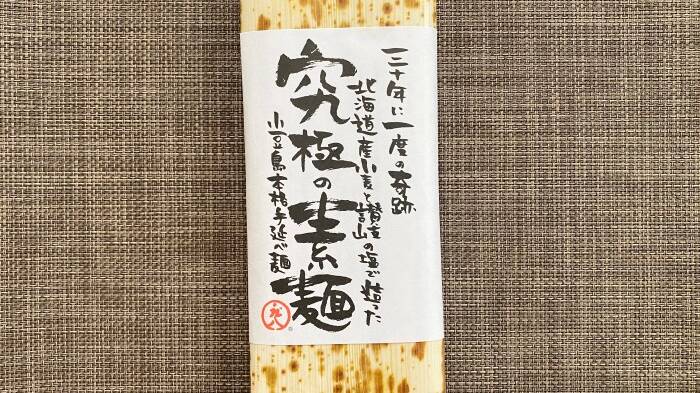 三十年に一度の奇跡
北海道産小麦と讃岐の塩で造った
究極の素麺
小豆島本格手延べ麺